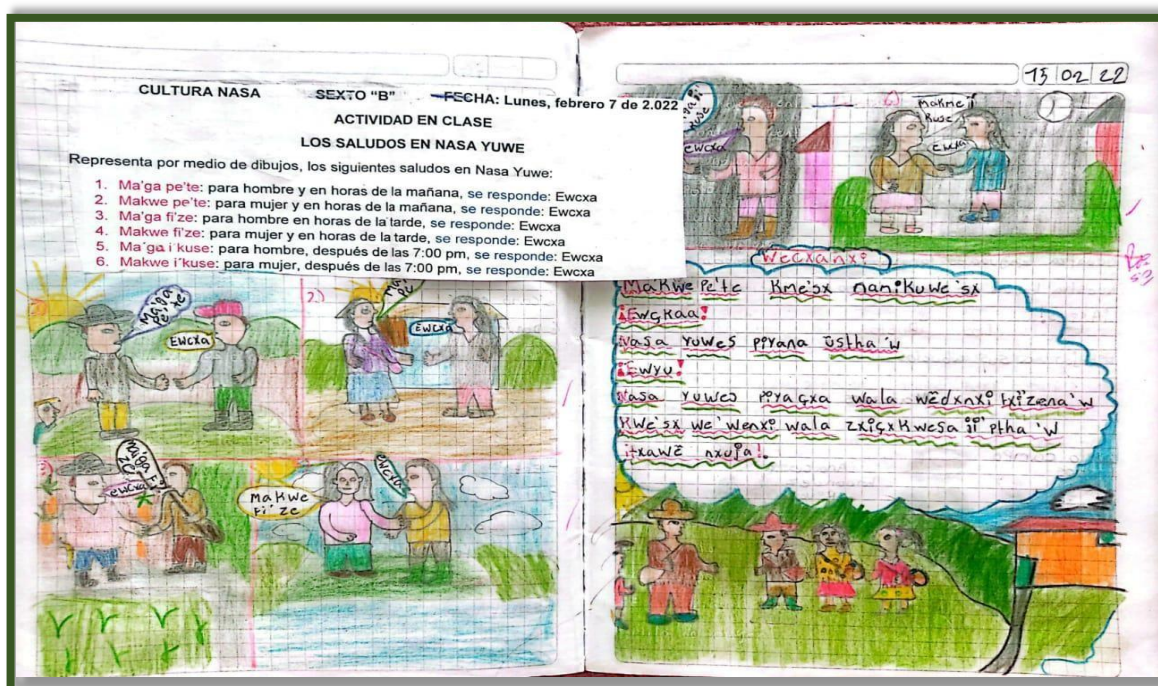 CULTURA NASA SEXTO "B" FECHA: Lunes, febrero 7 de 2.022
ACTIVIDAD EN CLASE
LOS SALUDOS EN NASA YUWE
Representa por medio de dibujos, los siguientes saludos en Nasa Yuwe:
1. Ma'ga pe'te: para hombre y en horas de la mañana, se responde: Ewcxa
2. Makwe pe'te: para mujer y en horas de la mañana, se responde: Ewcxa
3. Ma'ga fi'ze: para hombre en horas de la tarde, se responde: Ewcxa
4. Makwe fi'ze: para mujer y en horas de la tarde, se responde: Ewcxa
5. Ma´ga i´kuse: para hombre, después de las 7:00 pm, se responde: Ewcxa
6. Makwe i´kuse: para mujer, después de las 7:00 pm, se responde: Ewcxa
Ma'ga
pe'te
Ewcxa
2)
Ewcxa
ewcxa
Makwe
Fi'ze
ewcxa
15 02 22
ewcxa
Kuse
ewcxa
Wecxanxi
Makwe Pe'te Kme'sx nanikuwe'sx
¡Ewçkaa!
Nasa Yuwes piyana ũstha'w
¡Ewyu!
Nasa Yuwes piyaçxa wala wẽdxnxi txizena'w
Kwe'sx we'wenxi wala zxiçxkwesa ptha'w